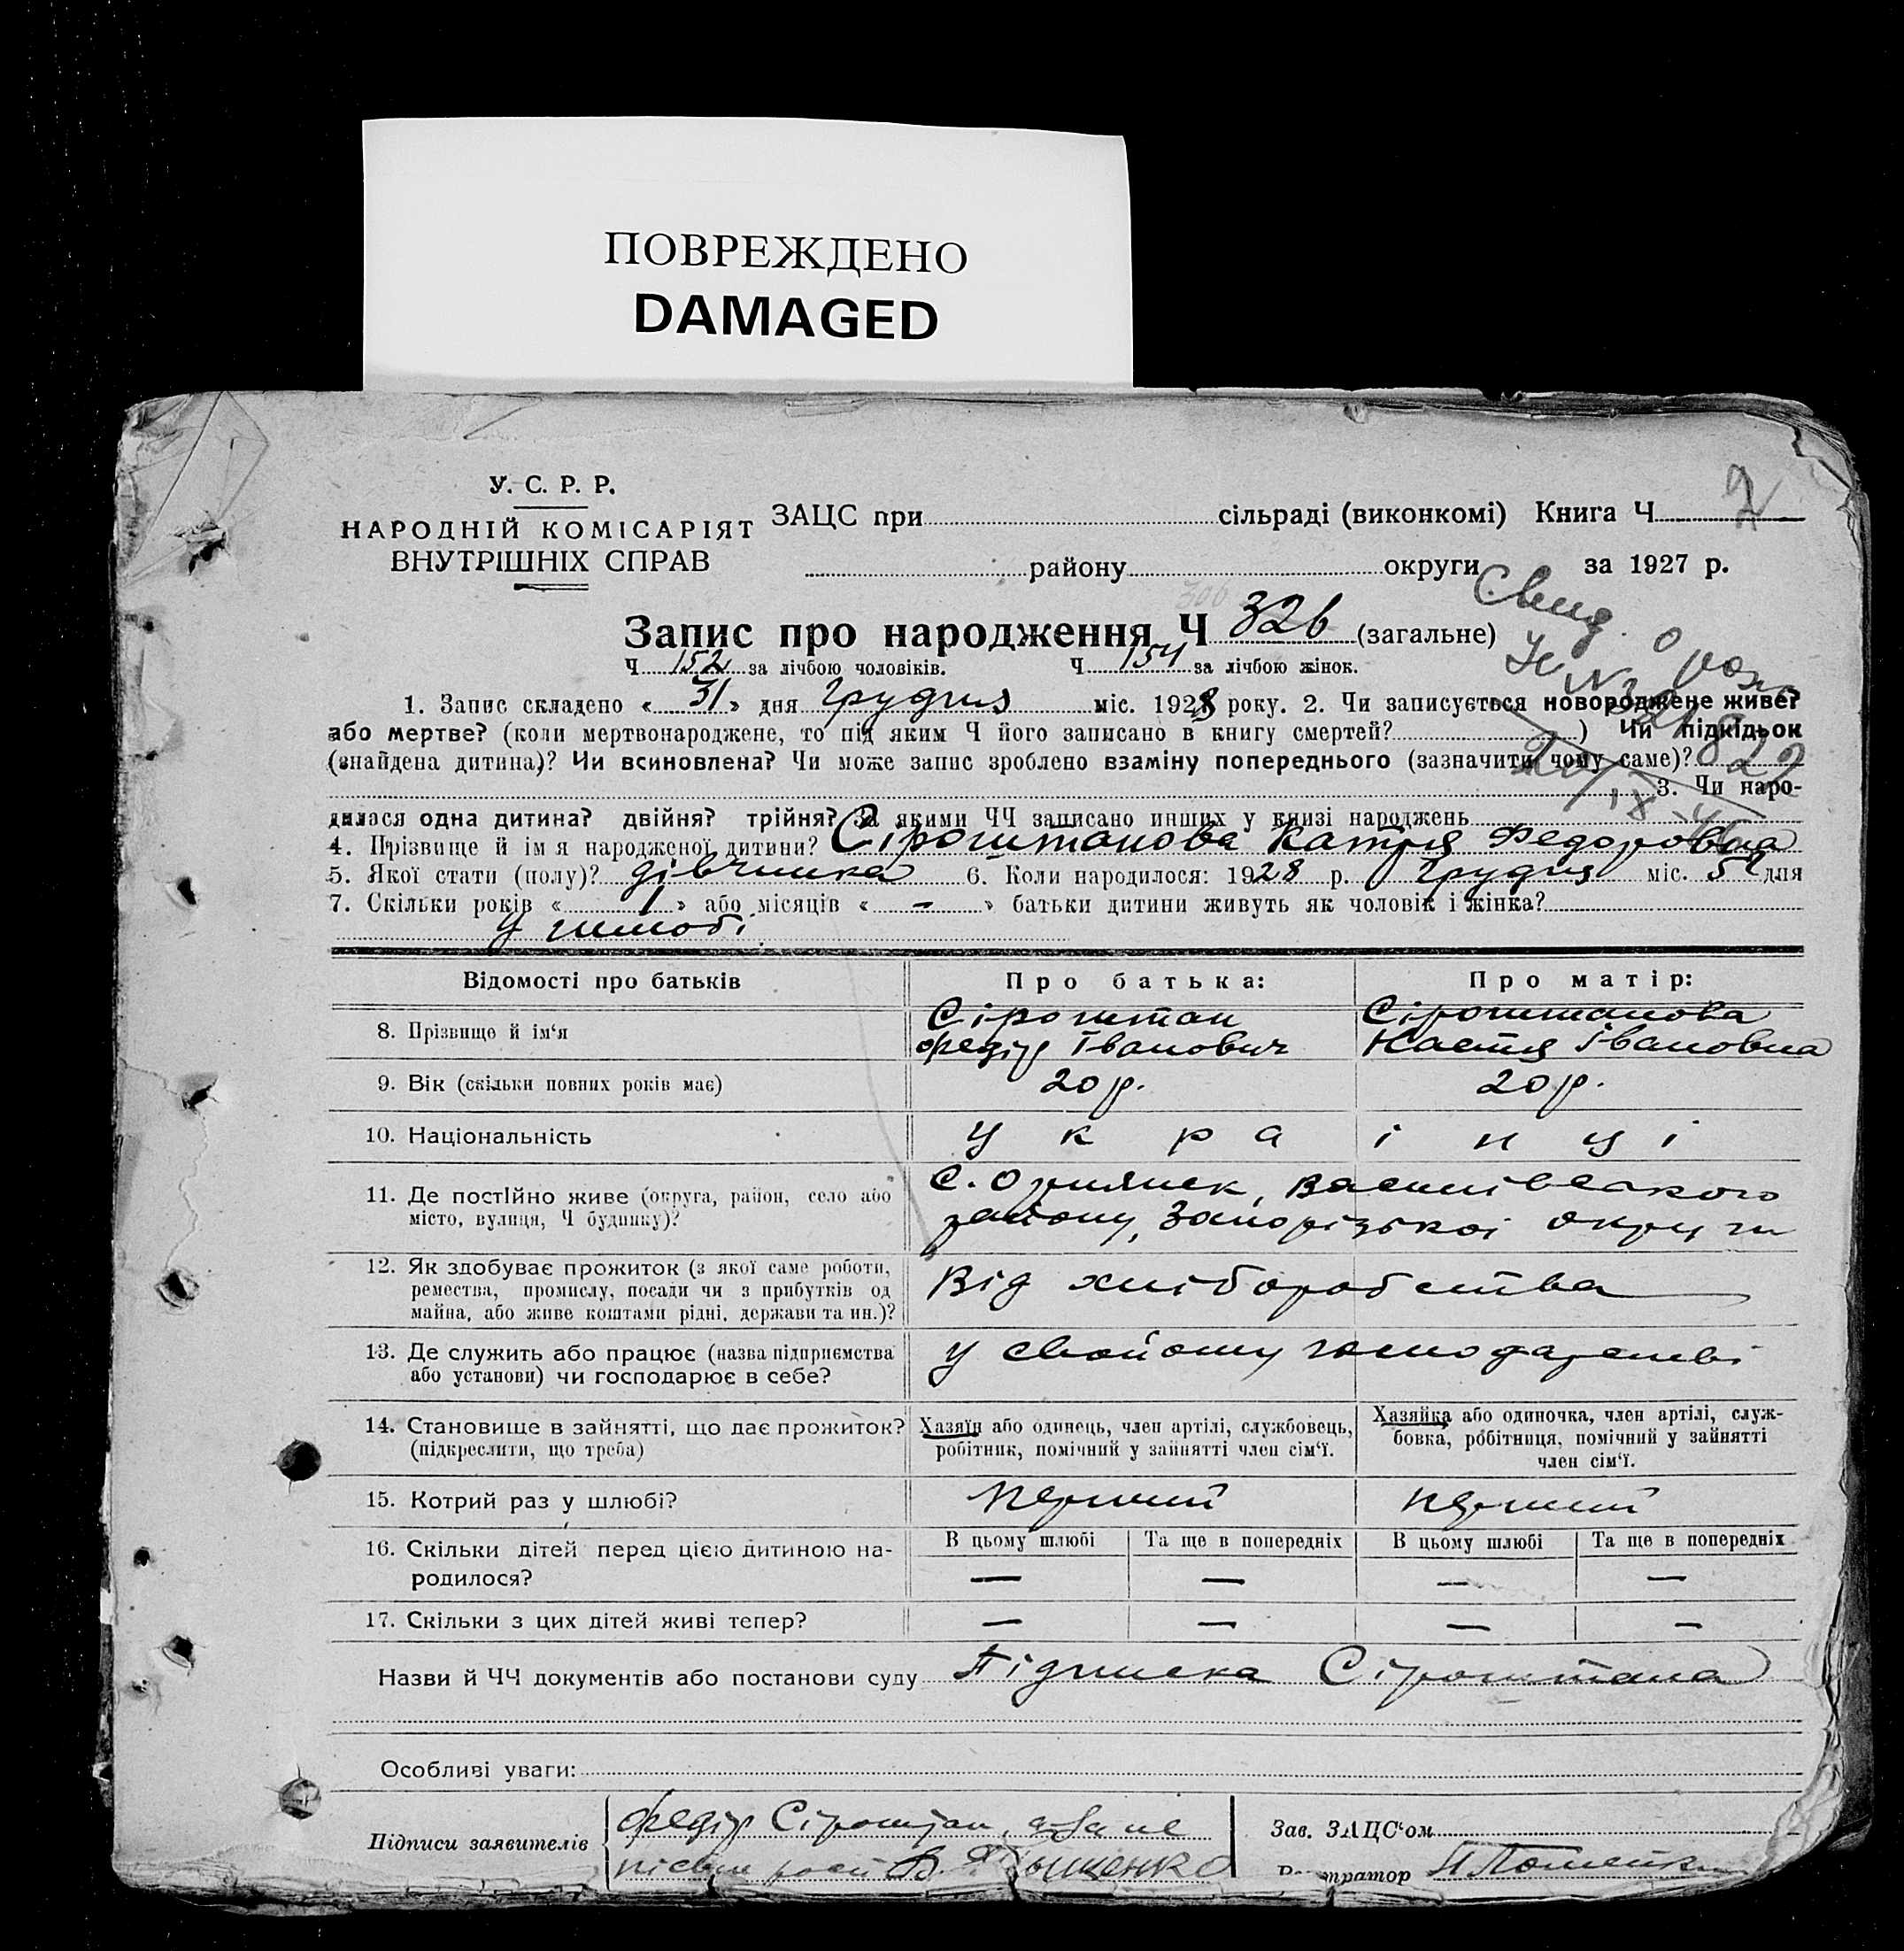 ПОВРЕЖДЕНО
DAMAGED
У. С. Р. Р.
НАРОДНІЙ КОМІСАРІЯТ
ВНУТРІШНІХ СПРАВ
ЗАЦС при сільраді (виконкомі) Книга Ч 2
району округи за 1927 р.
Свид.
Запис про народження Ч 326 (загальне)
Ч 152 за лічбою чоловіків. Ч 154 за лічбою жінок.
1. Запис складено « 31 » дня грудня міс. 1928 року. 2. Чи записується новороджене живе?
або мертве? (коли мертвонароджене, то під яким Ч його записано в книгу смертей? ) Чи підкідьок
(знайдена дитина)? Чи всиновлена? Чи може запис зроблено взаміну попереднього (зазначити чому саме)?
3. Чи наро-
дилася одна дитина? двійня? трійня? За якими ЧЧ записано инших у книзі народжень
4. Прізвище й ім'я народженої дитини? Сіроштанова Катря Федоровна
5. Якої стати (полу)? дівчинка 6. Коли народилося: 1928 р. грудня міс. 5 дня
7. Скільки років « 1 » або місяців « - » батьки дитини живуть як чоловік і жінка?
у шлюбі
Відомості про батьків Про батька: Про матір:
8. Прізвище й ім‘я Сіроштан Федір Іванович Сіроштанова Настя Івановна
9. Вік (скільки повних років має) 20 р. 20 р.
10. Національність українці
11. Де постійно живе (округа, район, село або місто, вулиця, Ч будинку)? с. Орлянск, Василівського
району, Запорізької округи
12. Як здобуває прожиток (з якої саме роботи,
ремества, промислу, посади чи з прибутків од
майна, або живе коштами рідні, держави та ин.)? Від хліборобства
13. Де служить або працює (назва підприємства
або установи) чи господарює в себе? у свойому господарстві
14. Становище в зайнятті, що дає прожиток?
(підкреслити, що треба)
Хазяїн або одинець, член артілі, службовець,
робітник, помічний у зайнятті член сім‘ї.
Хазяйка або одиночка, член артілі, служ-
бовка, робітниця, помічний у зайнятті
член сім‘ї.
15. Котрий раз у шлюбі? перший перший
16. Скільки дітей перед цією дитиною на-
родилося?
В цьому шлюбі Та ще в попередніх В цьому шлюбі Та ще в попередніх
— — — —
17. Скільки з цих дітей живі тепер? — — — —
Назви й ЧЧ документів або постанови суду Підписка Сіроштана
Особливі уваги:
Підписи заявителів Федір Сіроштан, а за не
Зав. ЗАЦС‘ом